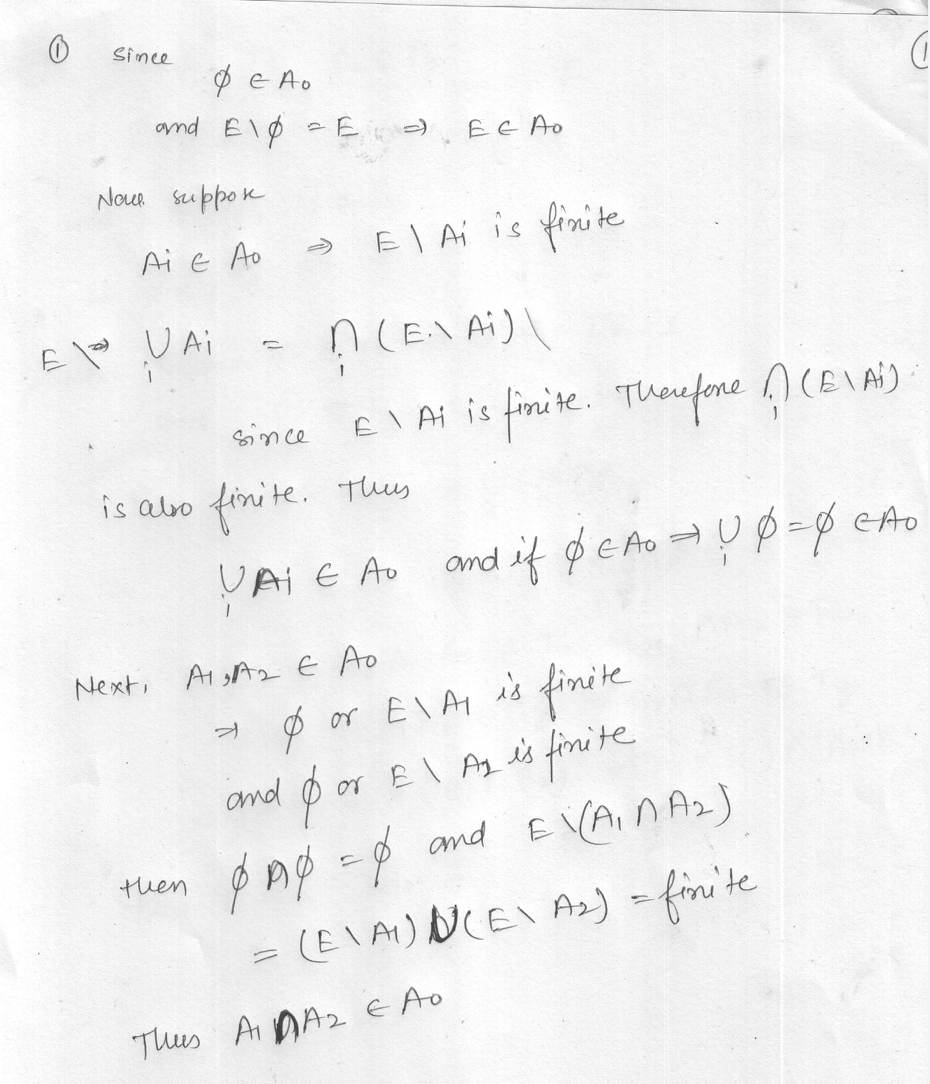 ① Since
ϕ ∈ A0
and E\ϕ = E ⇒ E ∈ A0
Now suppose
Ai ∈ A0 ⇒ E \ Ai is finite
E \ ⋃i Ai = ⋂i (E \ Ai) \
since E \ Ai is finite. Therefore ⋂i (E \ Ai)
is also finite. Thus
⋃i Ai ∈ A0 and if ϕ ∈ A0 ⇒ ⋃i ϕ = ϕ ∈ A0
Next, A1, A2 ∈ A0
⇒ ϕ or E \ A1 is finite
and ϕ or E \ A2 is finite
then ϕ ∩ ϕ = ϕ and E \ (A1 ∩ A2)
= (E \ A1) ∪ (E \ A2) = finite
Thus A1 ∩ A2 ∈ A0